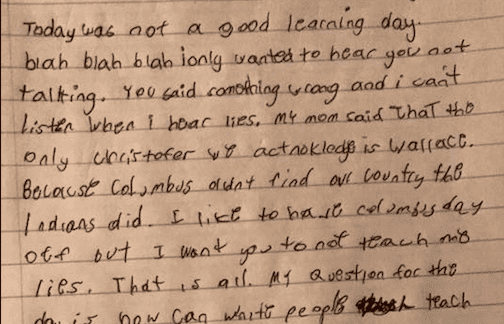 Today was not a good learning day.
blah blah blah i only wanted to hear you not
talking. You said something wrong and i can't
listen when i hear lies. My mom said That the
only christofer we acknokledge is wallace.
Because Columbus didnt find our country the
Indians did. I like to have columbus day
off but I want you to not teach me
lies. That is all. My Question for the
day is how can white people teach